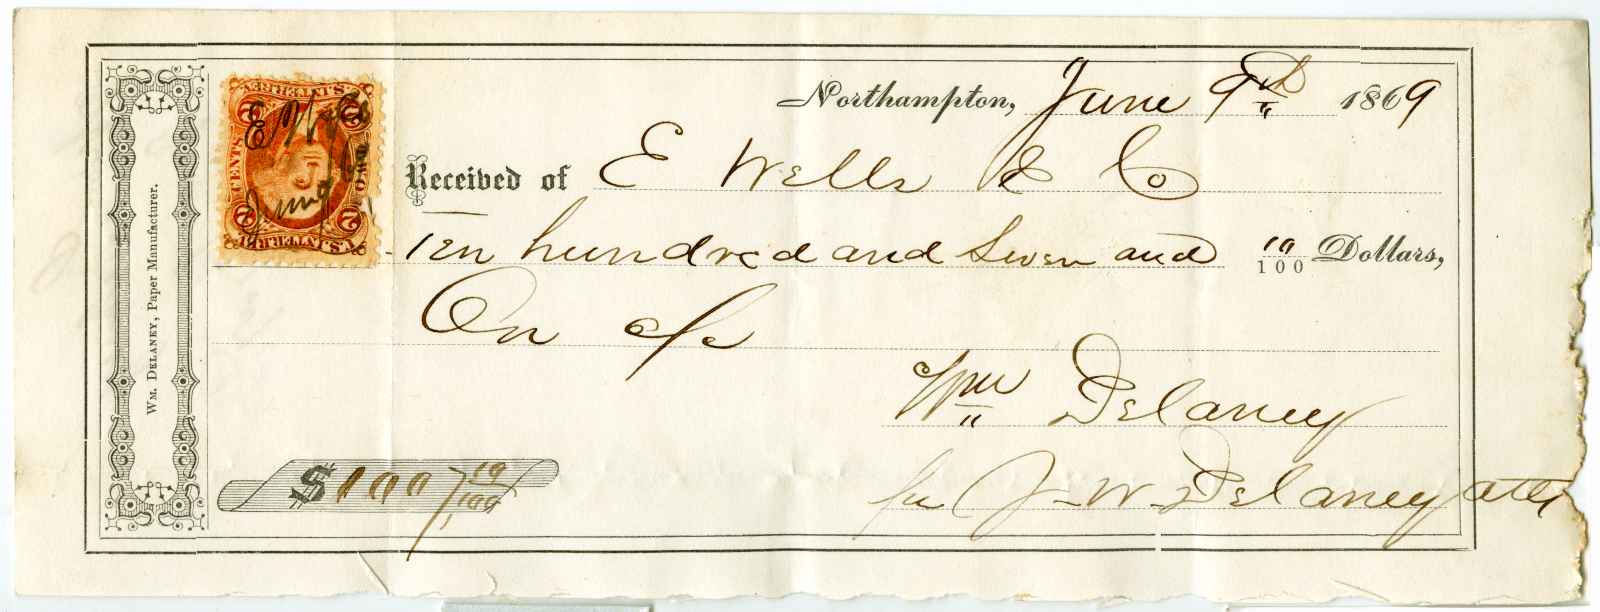 Northampton, June 9th 1869
Received of E Wells & Co
Ten hundred and Seven and 10/100 Dollars,
On a/c
Wm Delaney
per J-W-Delaney atty
$1007 10/100
WM. DELANEY, Paper Manufacturer.
U.S. INTER. REV.
2 CENTS 2
E Wells
June